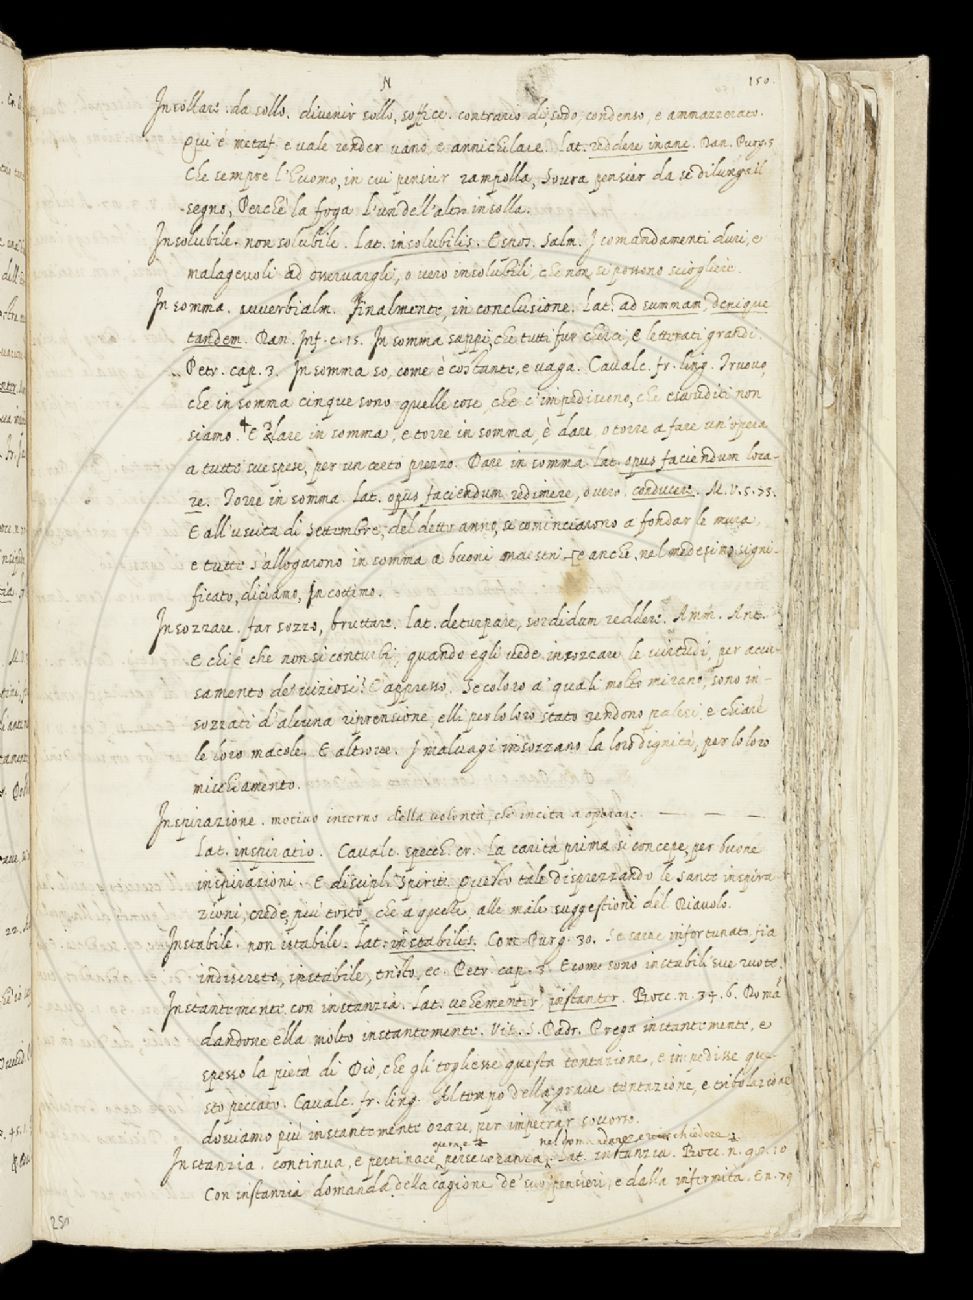 N
150.
Insollare. da sollo. divenir sollo, soffice. contrario di sodo, condenso, e ammazzerato.
Qui è metaf. e vale render vano, e annichilare. Lat. reddere inane. Dan. Purg. 5
Che sempre l'huomo, in cui pensier rampolla, Sovra pensier da se dilunga il
segno, Perchè la foga l'un dell'altro insolla.
Insolubile. non solubile. Lat. insolubilis. Espos. Salm. I comandamenti duri, e
malagevoli ad osservargli, o vero insolubili, che non si possono sciogliere.
In somma. avverbialm. Finalmente, in conclusione. Lat. ad summam, denique
tandem. Dan. Inf. c. 15. In somma sappi, che tutti fur cherci, E letterati grandi.
Petr. cap. 3. In somma so, come è costante, e vaga. Cavalc. fr. ling. Truovo,
che in somma cinque sono quelle cose, che c'impediscono, che esauditi non
siamo. E Dare in somma, e torre in somma, è dare, o torre a fare un'opera
a tutte sue spese, per un certo prezzo. Dare in somma Lat. opus faciendum loca-
re. Torre in somma. Lat. opus faciendum redimere, o vero conducere. M. V. 5. 73.
E all'uscita di Settembre, del detto anno, si cominciarono a fondar le mura,
e tutte s'allogarono in somma a buoni maestri. e anche, nel medesimo signi-
ficato, diciamo, In cottimo.
Insozzare. far sozzo, bruttare. Lat. deturpare, sordidum reddere. Amm. Ant.
E chi è che non si conturbi, quando egli vede insozzare le virtudi, per accu-
samento de' viziosi? E appresso. Se coloro a' quali molto mirano, sono in-
sozzati d'alcuna riprensione, elli per lo loro stato rendono palesi, e chiare
le loro macole. E altrove. I malvagi insozzano la loro dignità, per lo loro
mischiamento.
Inspirazione. motivo interno della volontà, che incita a operare.
Lat. inspiratio. Cavalc. specch. cr. La carità prima si concepe, per buone
inspirazioni. E discipl. Spirit. Questo tale disprezzando le sante inspira-
zioni, crede, più tosto, che a quelle, alle male suggestioni del Diavolo.
Instabile. non istabile. Lat. instabilis. Com. Purg. 30. Se sarae infortunato, fia
indiscreto, instabile, tristo, ec. Petr. cap. 3. E come sono instabili sue ruote.
Instantemente, con instanzia. Lat. vehementer, instanter. Bocc. n. 34. 6. Doman
dandone ella molto instantemente. Vit. S. Padr. Prega instantemente, e
spesso la pietà di Dio, che gli togliesse questa tentazione, e impedisse que-
sto peccato. Cavalc. fr. ling. Al tempo della grave tentazione, e tribolazione
doviamo più instantemente orare, per impetrar soccorso.
nel domandare e richiedere
Instanzia. continua, e pertinace perseveranza. Lat. instanzia. Bocc. n. 10
Con instanzia domanda della cagione de' suo' pensieri, e dalla infermità. En. 79
251